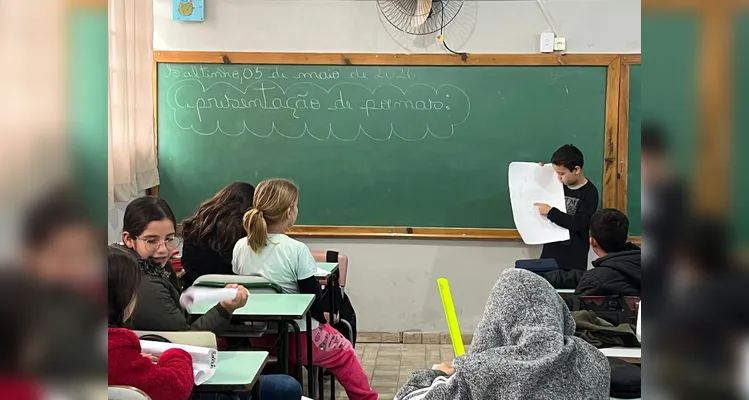 Joaltinho, 05 de maio de 2026
Apresentação de poemas: